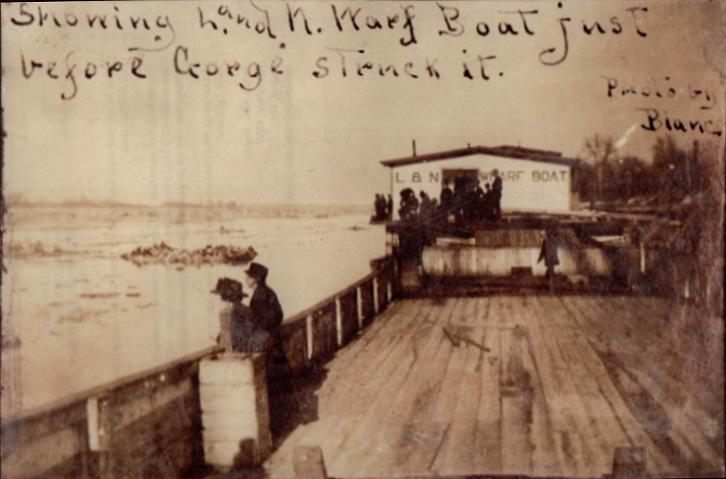 Showing L and N. Warf Boat just
before George struck it.
Photo by
Blanc
L & N WARF BOAT